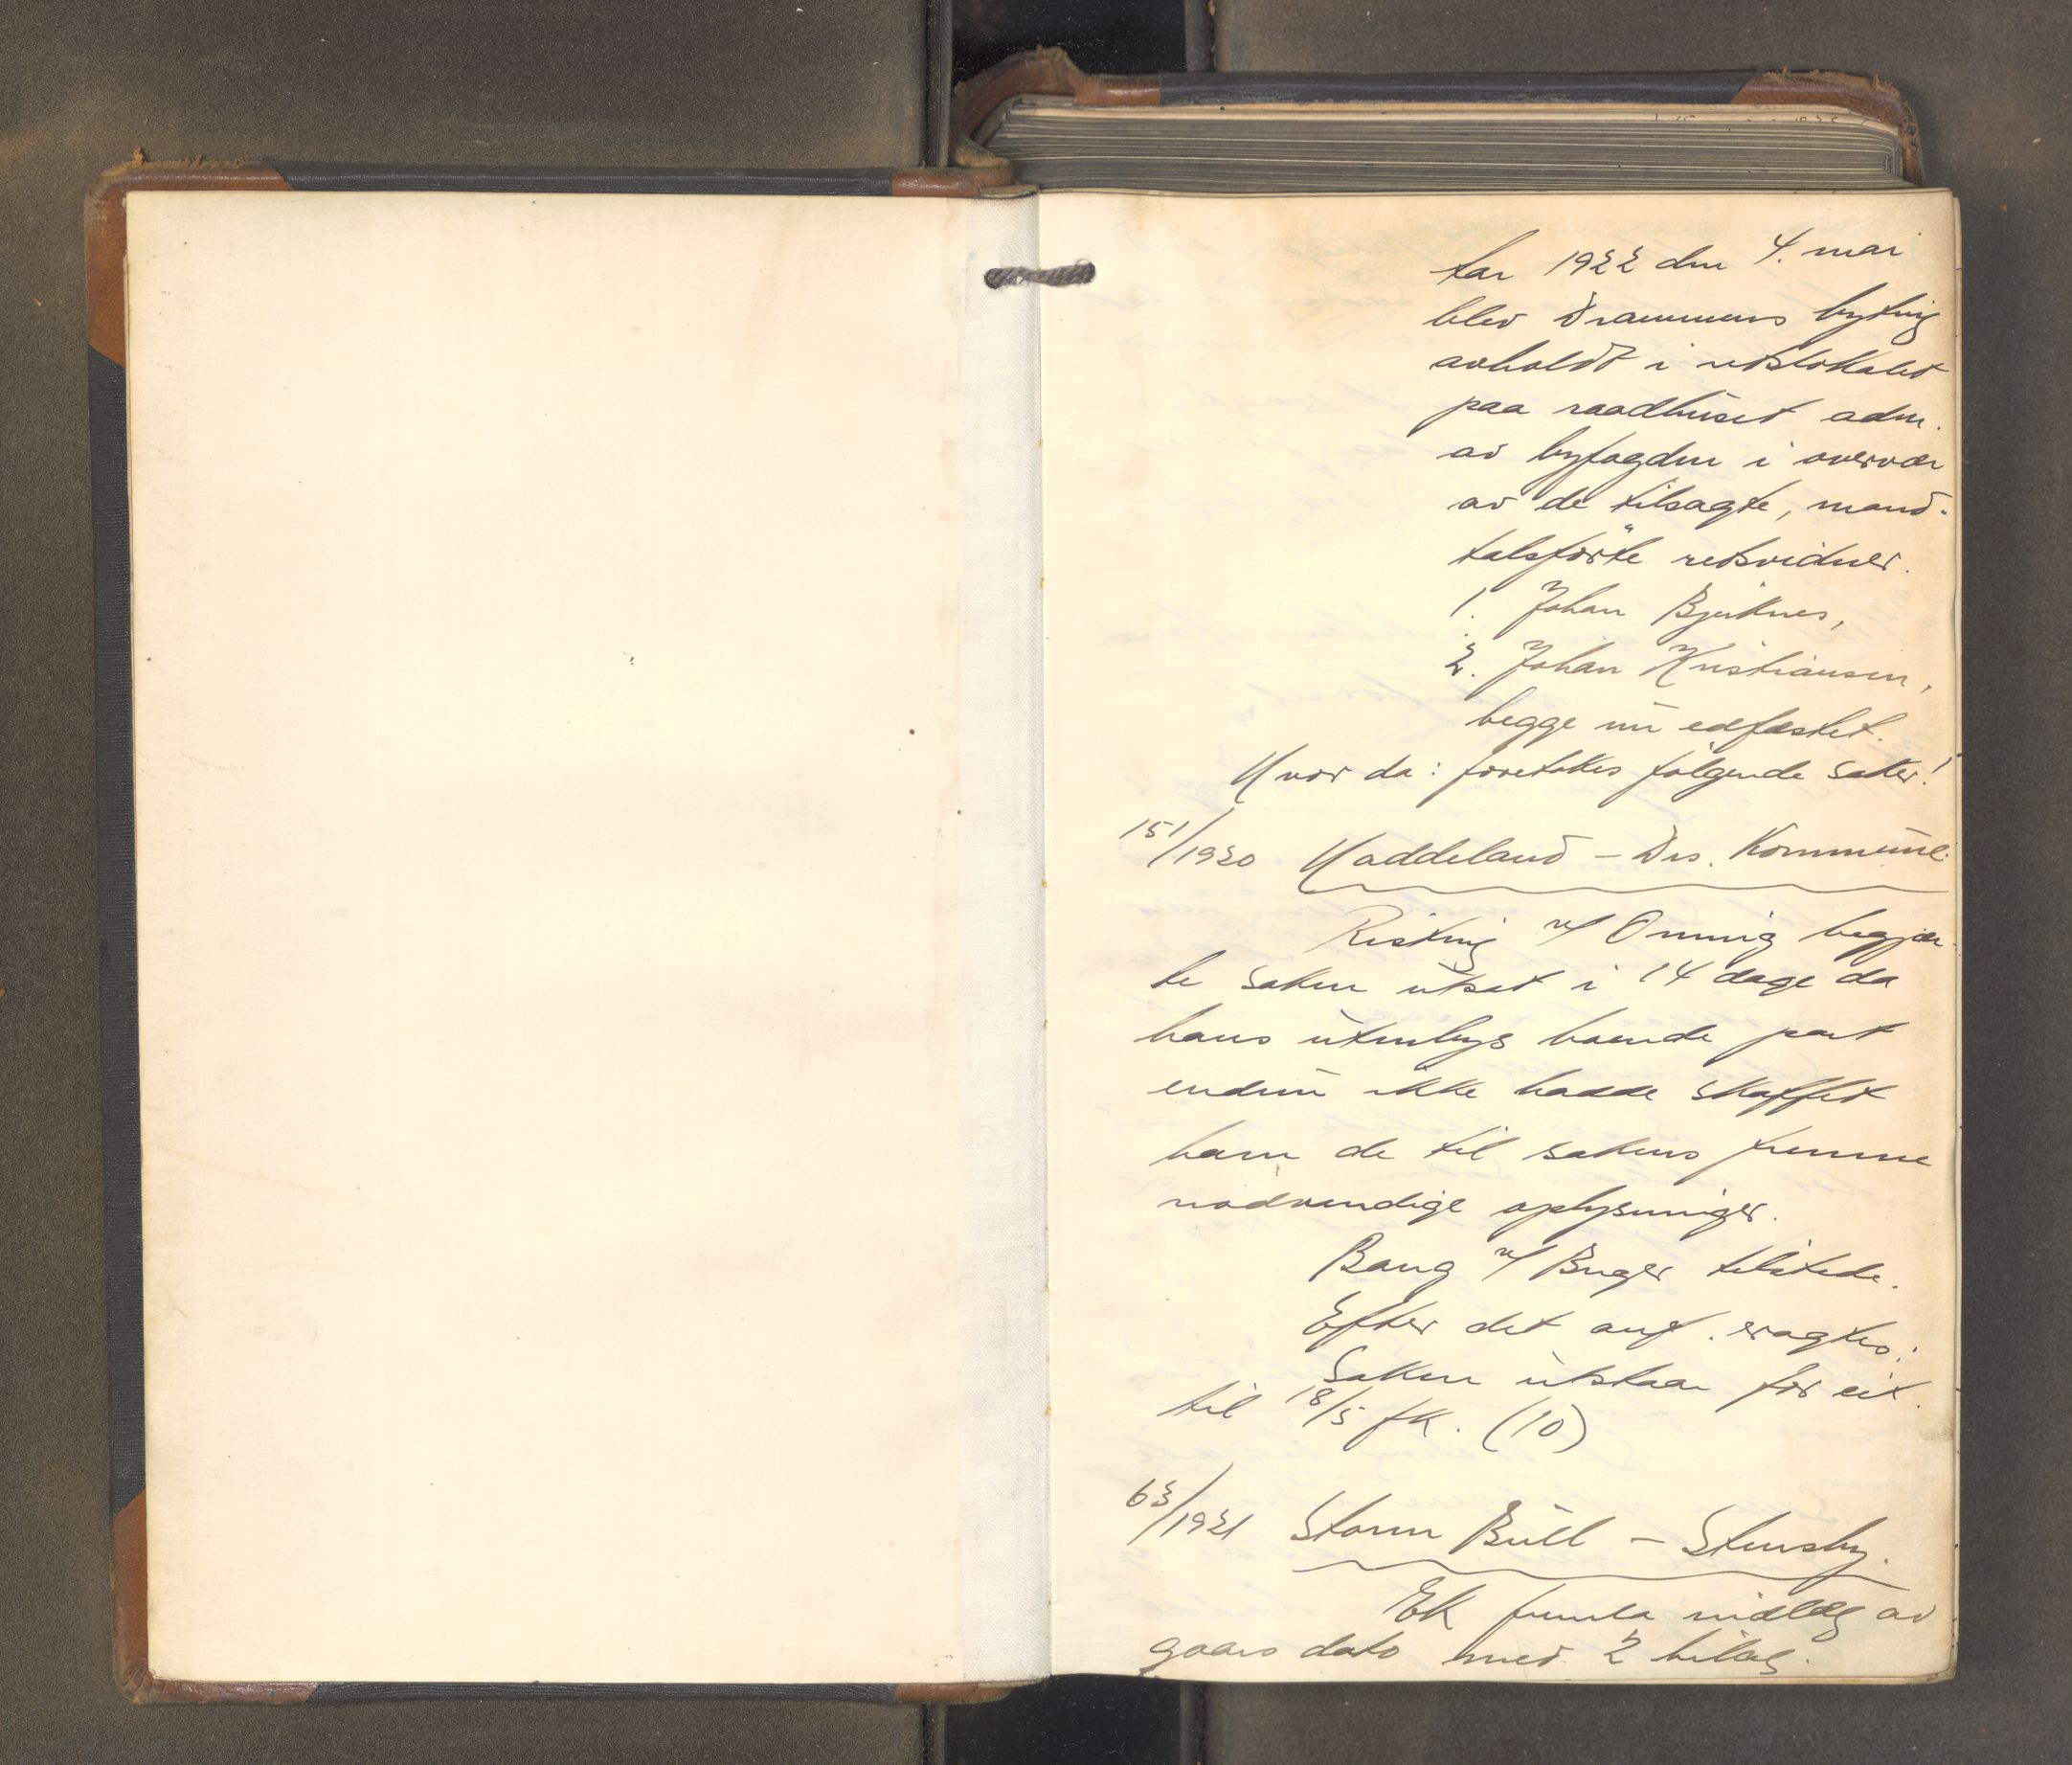 Aar 1922 den 4. mai
blev Drammens byting
avholdt i retslokalet
paa raadhuset adm.
av byfogden i overvær
av de tilsagte, mand-
talsførte retsvidner.
1. Johan Bjerknes,
2. Johan Kristiansen,
begge nu edfæstet.
Hvor da: foretokes følgende saker!
151/1920 Haddeland – Drs. Kommune.
Risting m/ Omming begjær-
te saken utsat i 14 dage da
hans utenbys boende part
endnu ikke hadde skaffet
ham de til sakens fremme
nødvendige oplysninger.
Bang m/ Buger tilstede.
Efter det anf. eragtes:
Saken utstaar for eit.
til 18/5 fk. (10)
63/1921 Storm Bull – Stensby.
EK fremla indlæg av
gaars dato med 2 bilag.